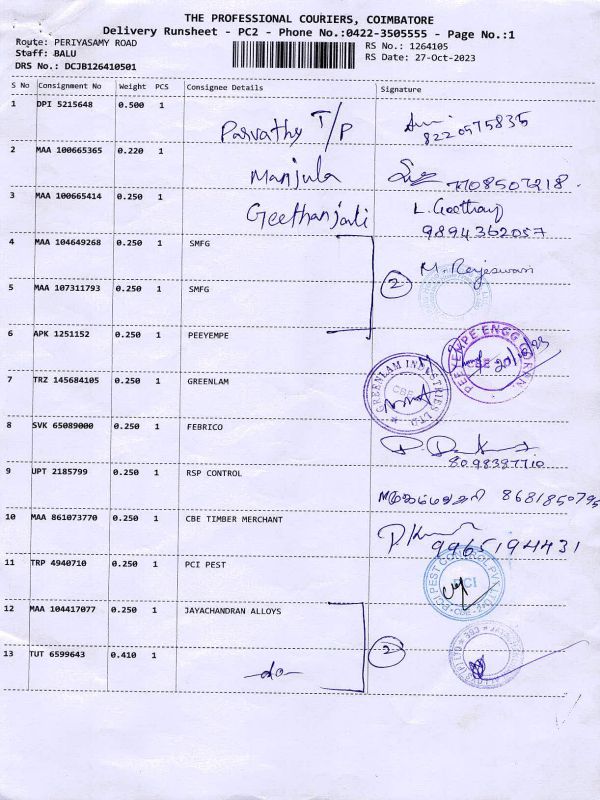 THE PROFESSIONAL COURIERS, COIMBATORE
Delivery Runsheet - PC2 - Phone No.:0422-3505555 - Page No.:1
Route: PERIYASAMY ROAD
Staff: BALU
DRS No.: DCJB126410501
RS No.: 1264105
RS Date: 27-Oct-2023
S No Consignment No Weight PCS Consignee Details Signature
1 DPI 5215648 0.500 1 Parvathy T/P
8220575835
2 MAA 100665365 0.220 1 Manjula
7708507218.
3 MAA 100665414 0.250 1 Geethanjali L. Geethanj
9894362057
4 MAA 104649268 0.250 1 SMFG M. Rajeswari
5 MAA 107311793 0.250 1 SMFG 2
6 APK 1251152 0.250 1 PEEYEMPE PEEYEMPE ENGG CBE
7 TRZ 145684105 0.250 1 GREENLAM GREENLAM INDUSTRIES LTD. CBE
8 SVK 65089000 0.250 1 FEBRICO
8098397710
9 UPT 2185799 0.250 1 RSP CONTROL 8681850795
10 MAA 861073770 0.250 1 CBE TIMBER MERCHANT P. Kum
9965194431
11 TRP 4940710 0.250 1 PCI PEST PCI PEST CONTROL PVT LTD PCI CBE
12 MAA 104417077 0.250 1 JAYACHANDRAN ALLOYS
13 TUT 6599643 0.410 1 -do- 2